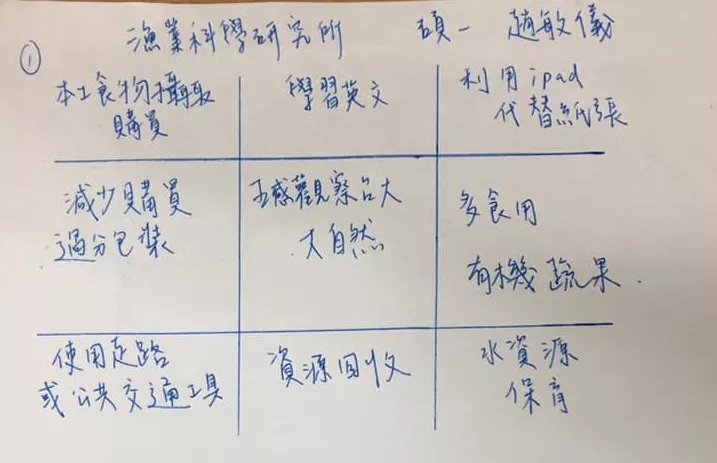 ① 漁業科學研究所 碩一 趙敏儀
本土食物攝取
購買
學習英文
利用ipad
代替紙張
減少購買
過分包裝
五感觀察台大
大自然
多食用
有機蔬果.
使用走路
或公共交通工具
資源回收
水資源
保育